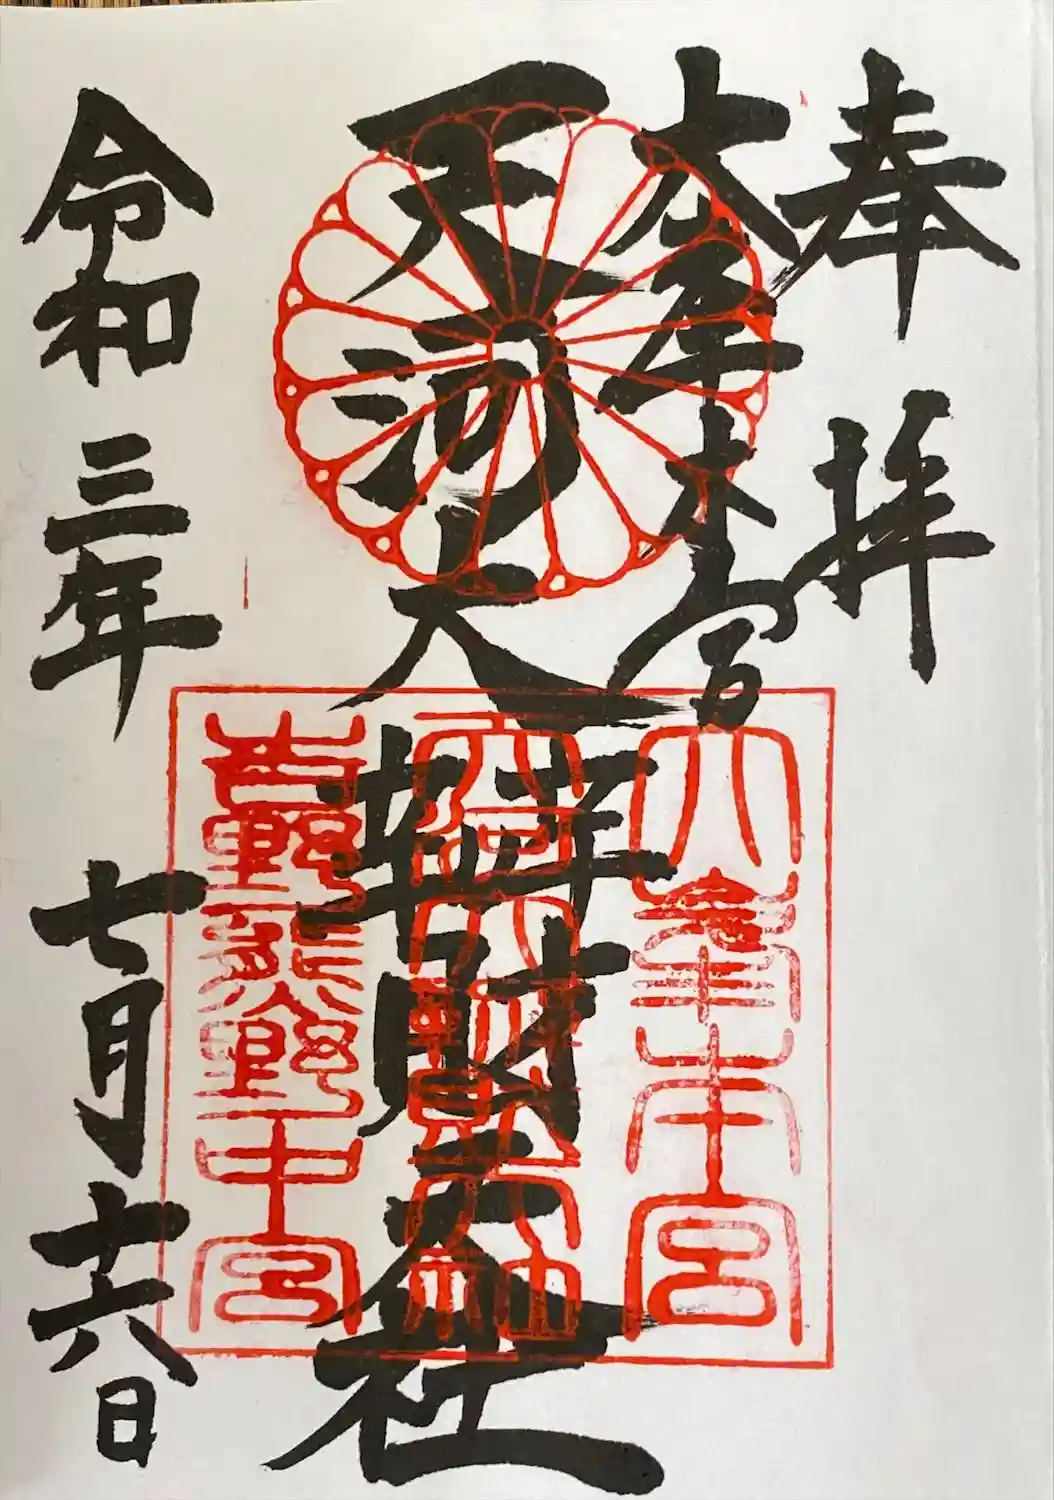 奉拝
大峯本宮
天河大辨財天社
令和三年 七月十六日
大峯本宮
天河大辨財天社
吉野熊野中宮